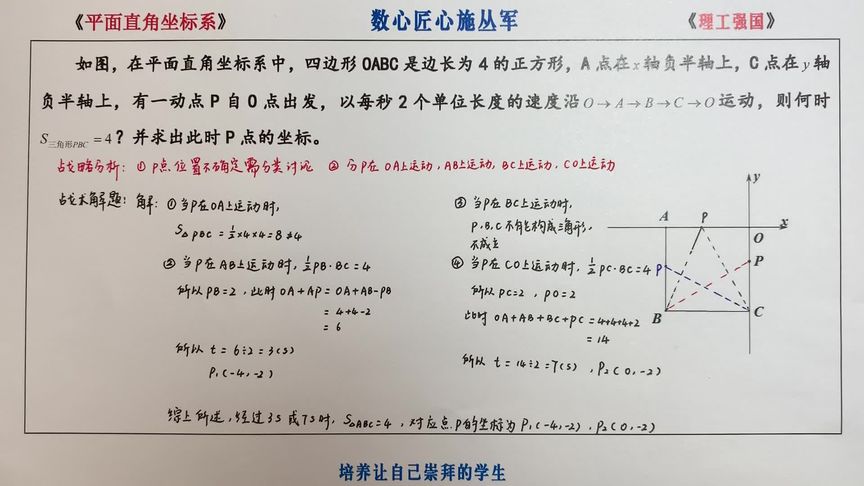 《平面直角坐标系》
数心匠心施丛军
《理工强国》
如图，在平面直角坐标系中，四边形 OABC 是边长为 4 的正方形，A 点在 x 轴负半轴上，C 点在 y 轴
负半轴上，有一动点 P 自 O 点出发，以每秒 2 个单位长度的速度沿 O→A→B→C→O 运动，则何时
S三角形PBC = 4？并求出此时 P 点的坐标。
战略分析：① P点位置不确定需分类讨论 ② 分P在OA上运动，AB上运动，BC上运动，CO上运动
战术解题：解：① 当P在OA上运动时，
S△PBC = ½×4×4=8≠4
② 当P在AB上运动时，½PB·BC=4
所以PB=2，此时OA+AP=OA+AB-PB
= 4+4-2
= 6
所以 t = 6÷2=3(s)
P₁(-4,-2)
③ 当P在BC上运动时，
P、B、C不能构成三角形，
不成立
④ 当P在CO上运动时，½PC·BC=4
所以PC=2，PO=2
此时 OA+AB+BC+PC=4+4+4+2
= 14
所以 t = 14÷2=7(s)，P₂(0,-2)
A P O x y
P P
B C
综上所述，经过3S或7S时，S△ABC=4，对应点P的坐标为P₁(-4,-2)，P₂(0,-2)
培养让自己崇拜的学生